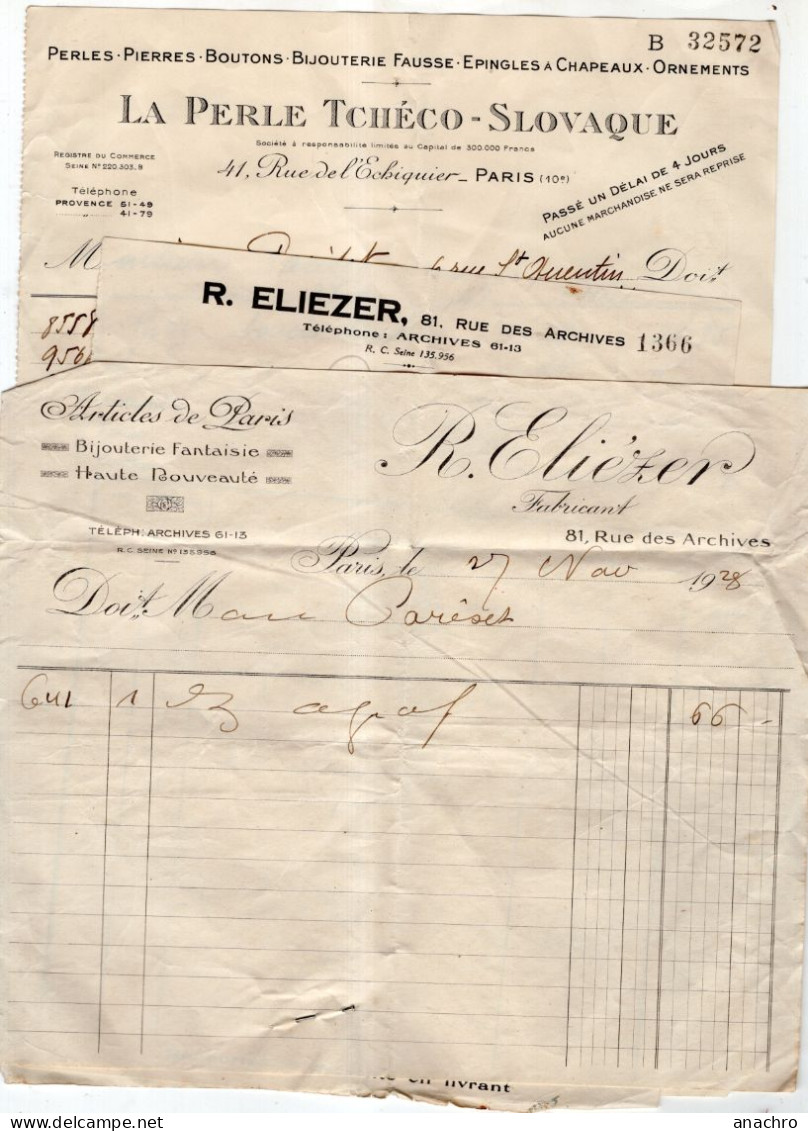 B 32572
PERLES · PIERRES · BOUTONS · BIJOUTERIE FAUSSE · EPINGLES A CHAPEAUX · ORNEMENTS
LA PERLE TCHÉCO-SLOVAQUE
Société à responsabilité limitée au Capital de 300.000 Francs
REGISTRE DU COMMERCE
SEINE No 220.303.B
41, Rue de l'Echiquier_ PARIS (10e)
Téléphone
PROVENCE 51-49
" 41-79
PASSÉ UN DÉLAI DE 4 JOURS
AUCUNE MARCHANDISE NE SERA REPRISE
M rue St Quentin Doit
8558
956
R. ELIEZER, 81, RUE DES ARCHIVES 1366
Téléphone: ARCHIVES 61-13
R. C. Seine 135.956
Articles de Paris
Bijouterie Fantaisie
Haute Nouveauté
TÉLÉPH: ARCHIVES 61-13
R.C. SEINE No 135.956
R. Eliézer
Fabricant
81, Rue des Archives
Paris, le 27 Nov 1928
Doit M
641 1 agraf 66 -
en livrant
delcampe.net
anachro